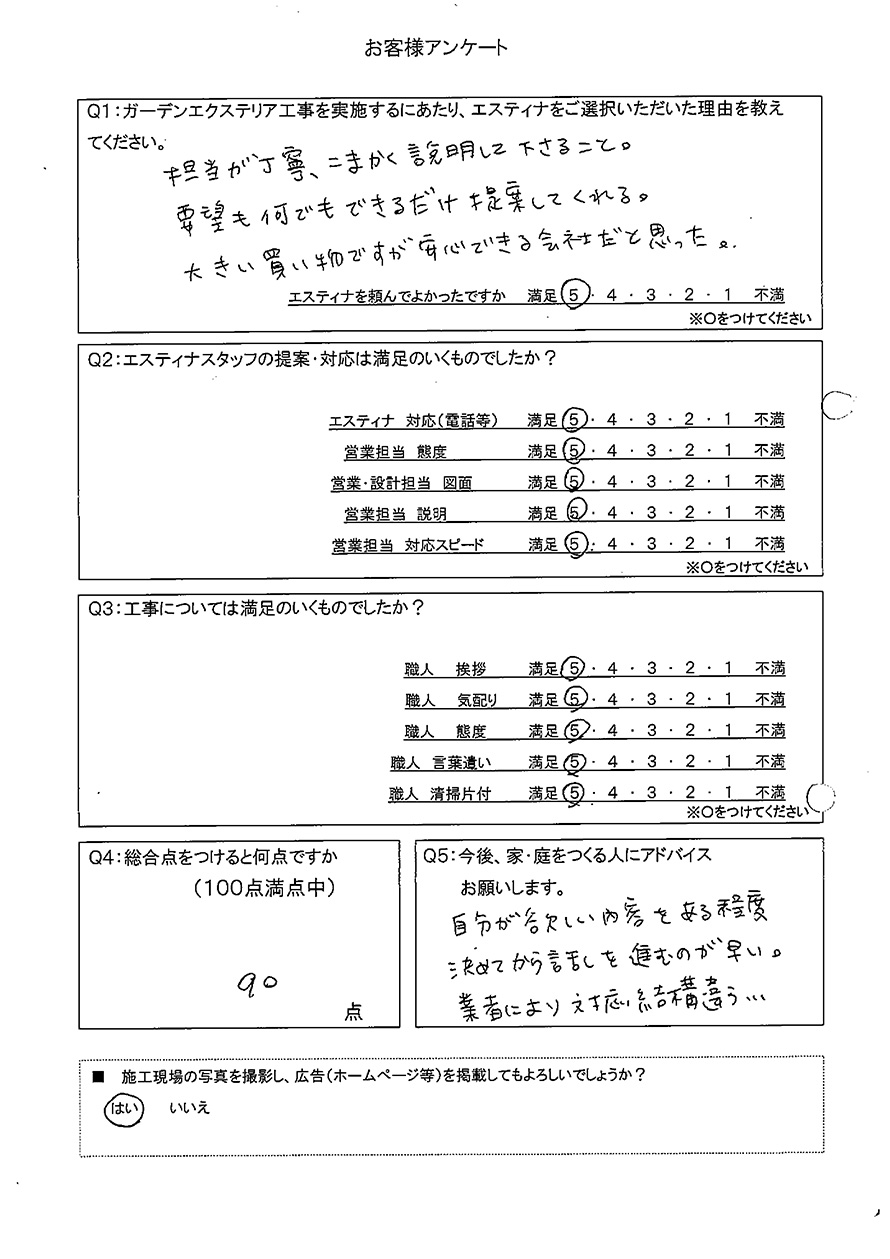 お客様アンケート
Q1:ガーデンエクステリア工事を実施するにあたり、エスティナをご選択いただいた理由を教え
てください。
担当が丁寧、こまかく説明して下さること。
要望も何でもできるだけ提案してくれる。
大きい買い物ですが安心できる会社だと思った。
エスティナを頼んでよかったですか 満足 5・4・3・2・1 不満
※○をつけてください
Q2:エスティナスタッフの提案・対応は満足のいくものでしたか?
エスティナ 対応(電話等) 満足 5・4・3・2・1 不満
営業担当 態度 満足 5・4・3・2・1 不満
営業・設計担当 図面 満足 5・4・3・2・1 不満
営業担当 説明 満足 5・4・3・2・1 不満
営業担当 対応スピード 満足 5・4・3・2・1 不満
※○をつけてください
Q3:工事については満足のいくものでしたか?
職人 挨拶 満足 5・4・3・2・1 不満
職人 気配り 満足 5・4・3・2・1 不満
職人 態度 満足 5・4・3・2・1 不満
職人 言葉遣い 満足 5・4・3・2・1 不満
職人 清掃片付 満足 5・4・3・2・1 不満
※○をつけてください
Q4:総合点をつけると何点ですか
(100点満点中)
90
点
Q5:今後、家・庭をつくる人にアドバイス
お願いします。
自分が欲しい内容をある程度
決めてから話しを進むのが早い。
業者により対応結構違う…
■ 施工現場の写真を撮影し、広告(ホームページ等)を掲載してもよろしいでしょうか?
はい いいえ